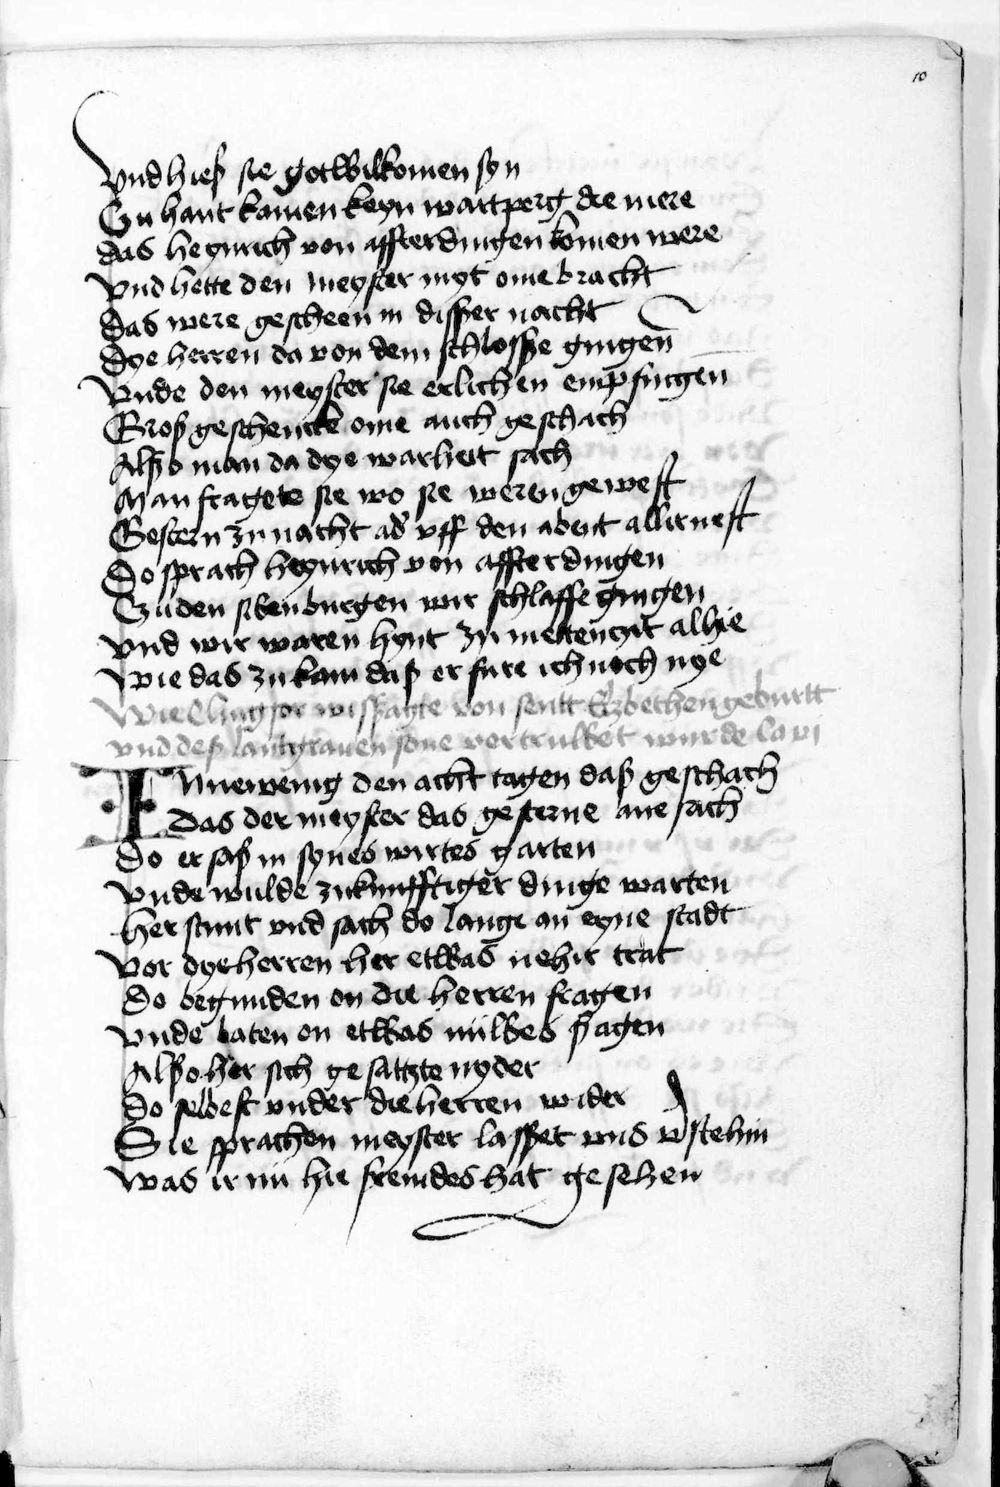 10
Vnd hieß sie gotwilkomen syn
Czu hant kamen keyn wartperg die mere
das heynrich von affterdingen komen were
Vnd hette den meyster myt ome bracht
Das were gescheen in disßer nacht
Dye herren da von dem schlosße gingen
Vnde den meyster sie erlichen empfingen
Groß geschencke ome auch geschach
Alßo man da dye warheit sach
Man fragete sie wo sie weren gewest
Gestern zu nacht ader vff den abent allirnest
Do sprach heynrich von affterdingen
Czu den sibenburgen wir schlaffe gingen
Vnd wir waren hynt zu mettenczit alhie
Wie das zu kam daß er fure ich noch nye
Wie Clingsor wisßagte von sentt Elzbethen geburtt
vnd deß lantgrauen sone vertruwet wurde
Innewenig den acht tagen daß geschach
Das der meyster das gesterne ane sach
Do er saß in synes wirtes garten
Vnde wulde zukunfftiger dinge warten
Her stunt vnd sach do lange an eyne stadt
Vor dye herren her etwas nehir trat
Do begunden on die herren fragen
Vnde baten on etwas nuwes sagen
Alßo her sich gesatzte nyder
Do selbest vnder die herren wider
Sie sprachen meyster lasßet vns vstehin
Was ir nu hie fremdes hat gesehen